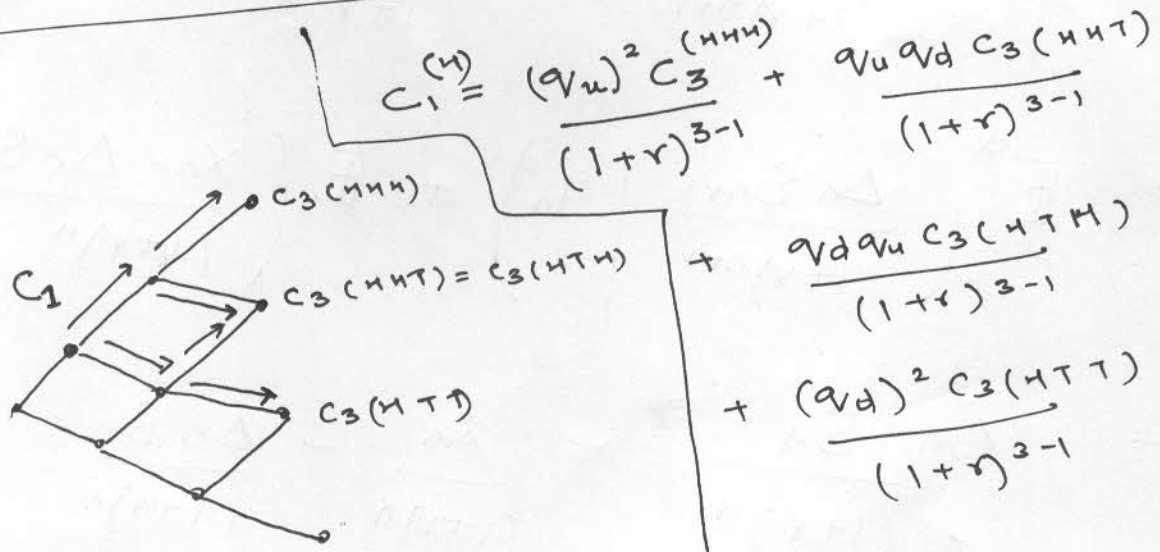 C₁(H) = (qu)² C₃(HHH) / (1+r)³⁻¹ + qu qd C₃(HHT) / (1+r)³⁻¹
+ qd qu C₃(HTH) / (1+r)³⁻¹
+ (qd)² C₃(HTT) / (1+r)³⁻¹
C₁
C₃(HHH)
C₃(HHT) = C₃(HTH)
C₃(HTT)